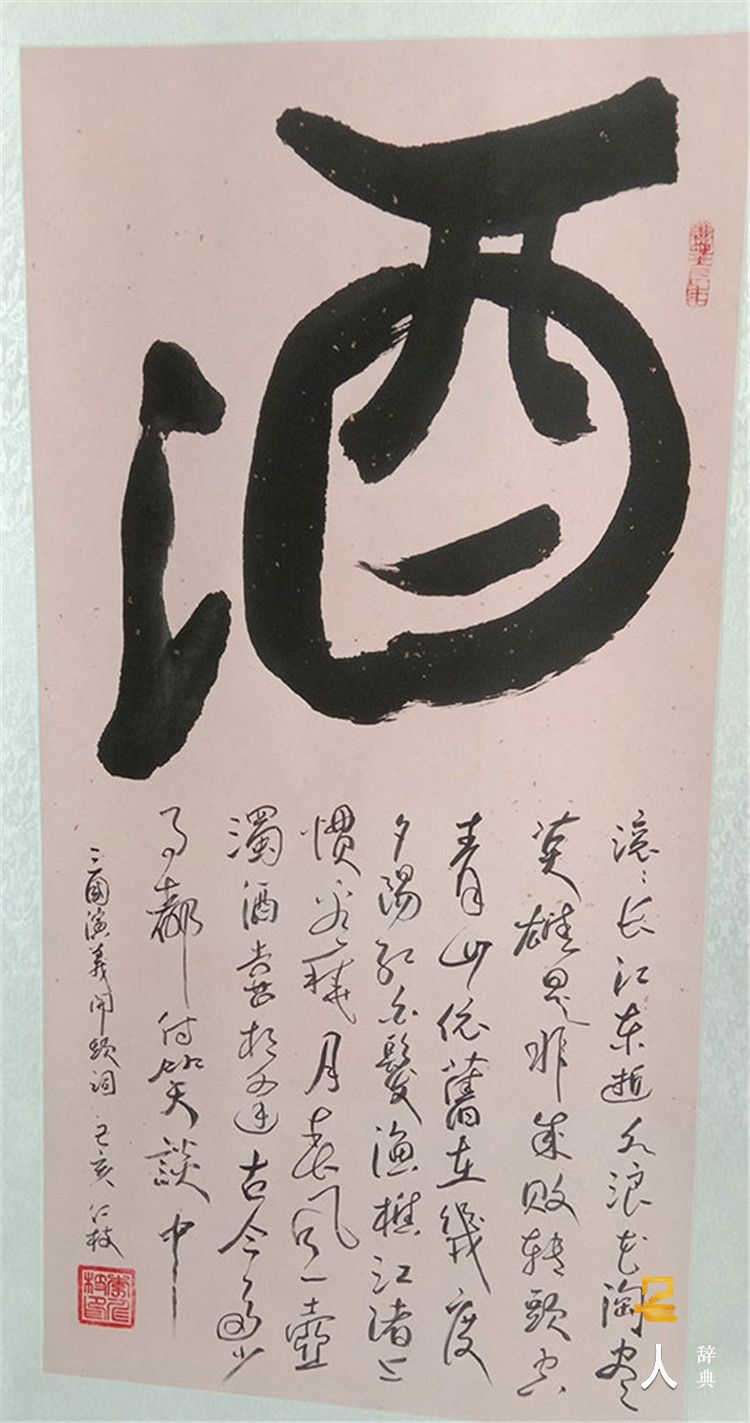 酒
滚〻长江东逝水浪花淘尽
英雄是非成败转頭空
青山依舊在幾度
夕陽红白髮渔樵江渚上
惯看秋月春风一壺
濁酒喜相逢古今多少
事都付笑談中
三國演義开頭词 己亥 仁枝
人
辞典